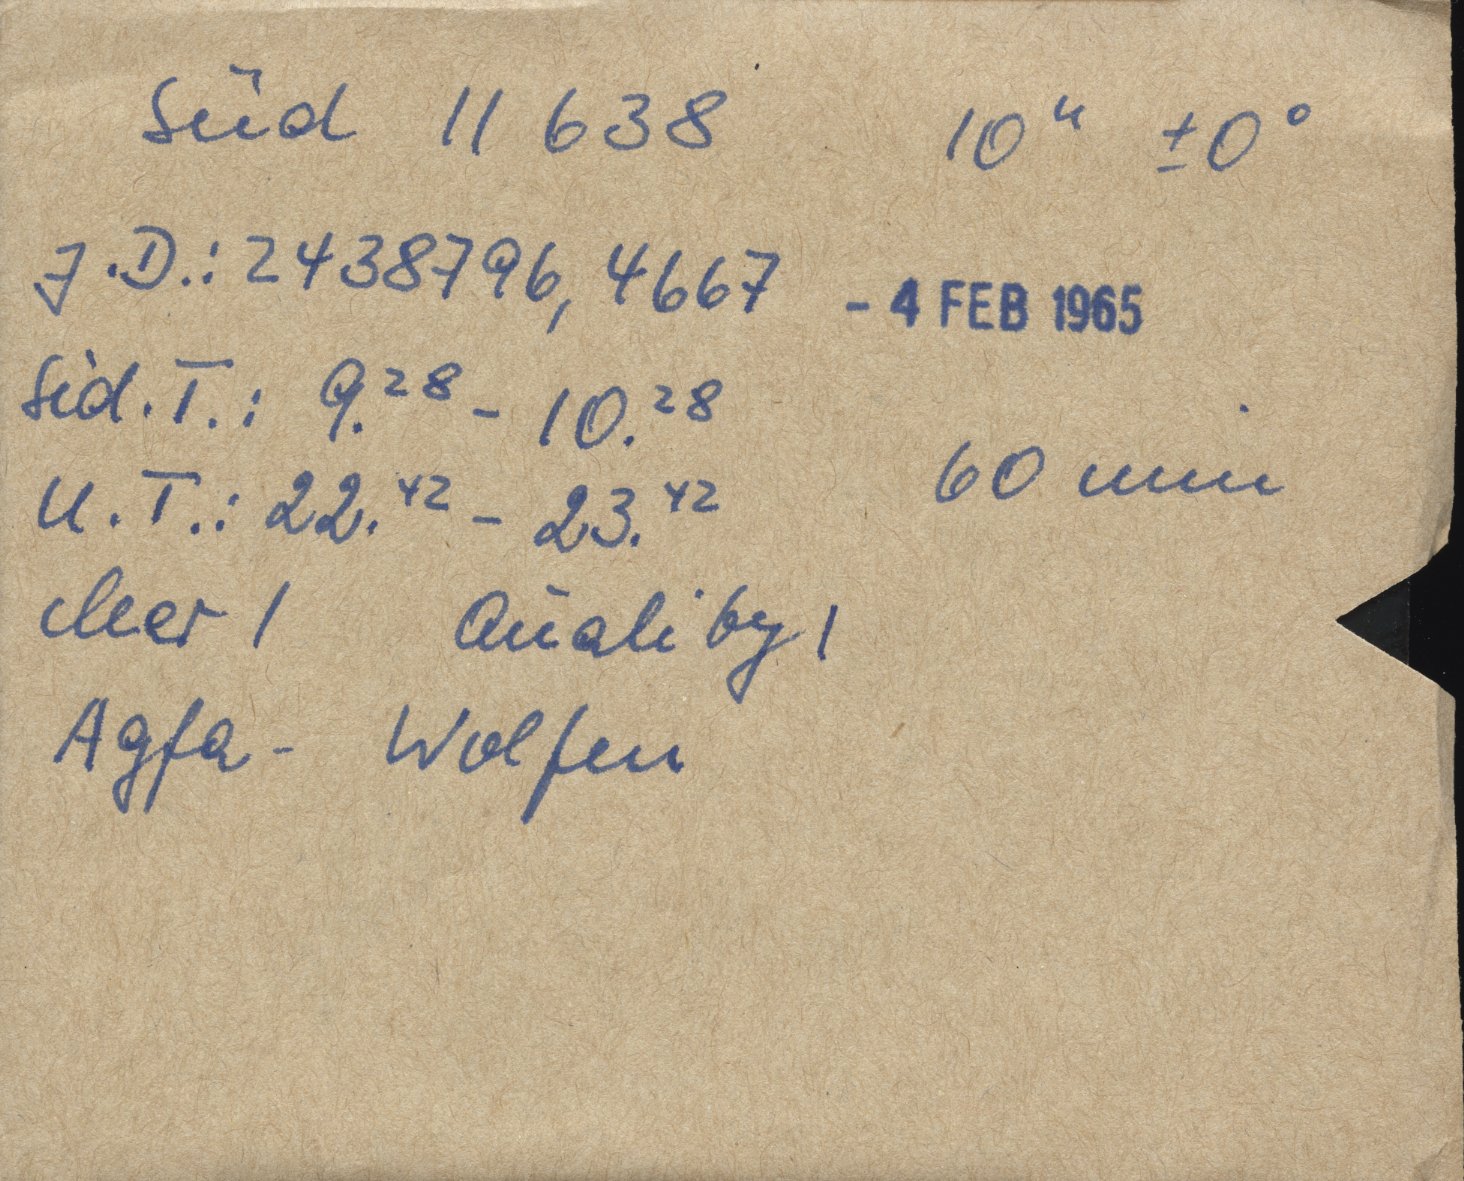 Süd 11 638 10ʰ ±0°
J.D.: 2438796,4667 - 4 FEB 1965
Sid.T.: 9.²⁸ - 10.²⁸
U.T.: 22.⁴² - 23.⁴² 60 min
clear 1 Quality 1
Agfa- Wolfen